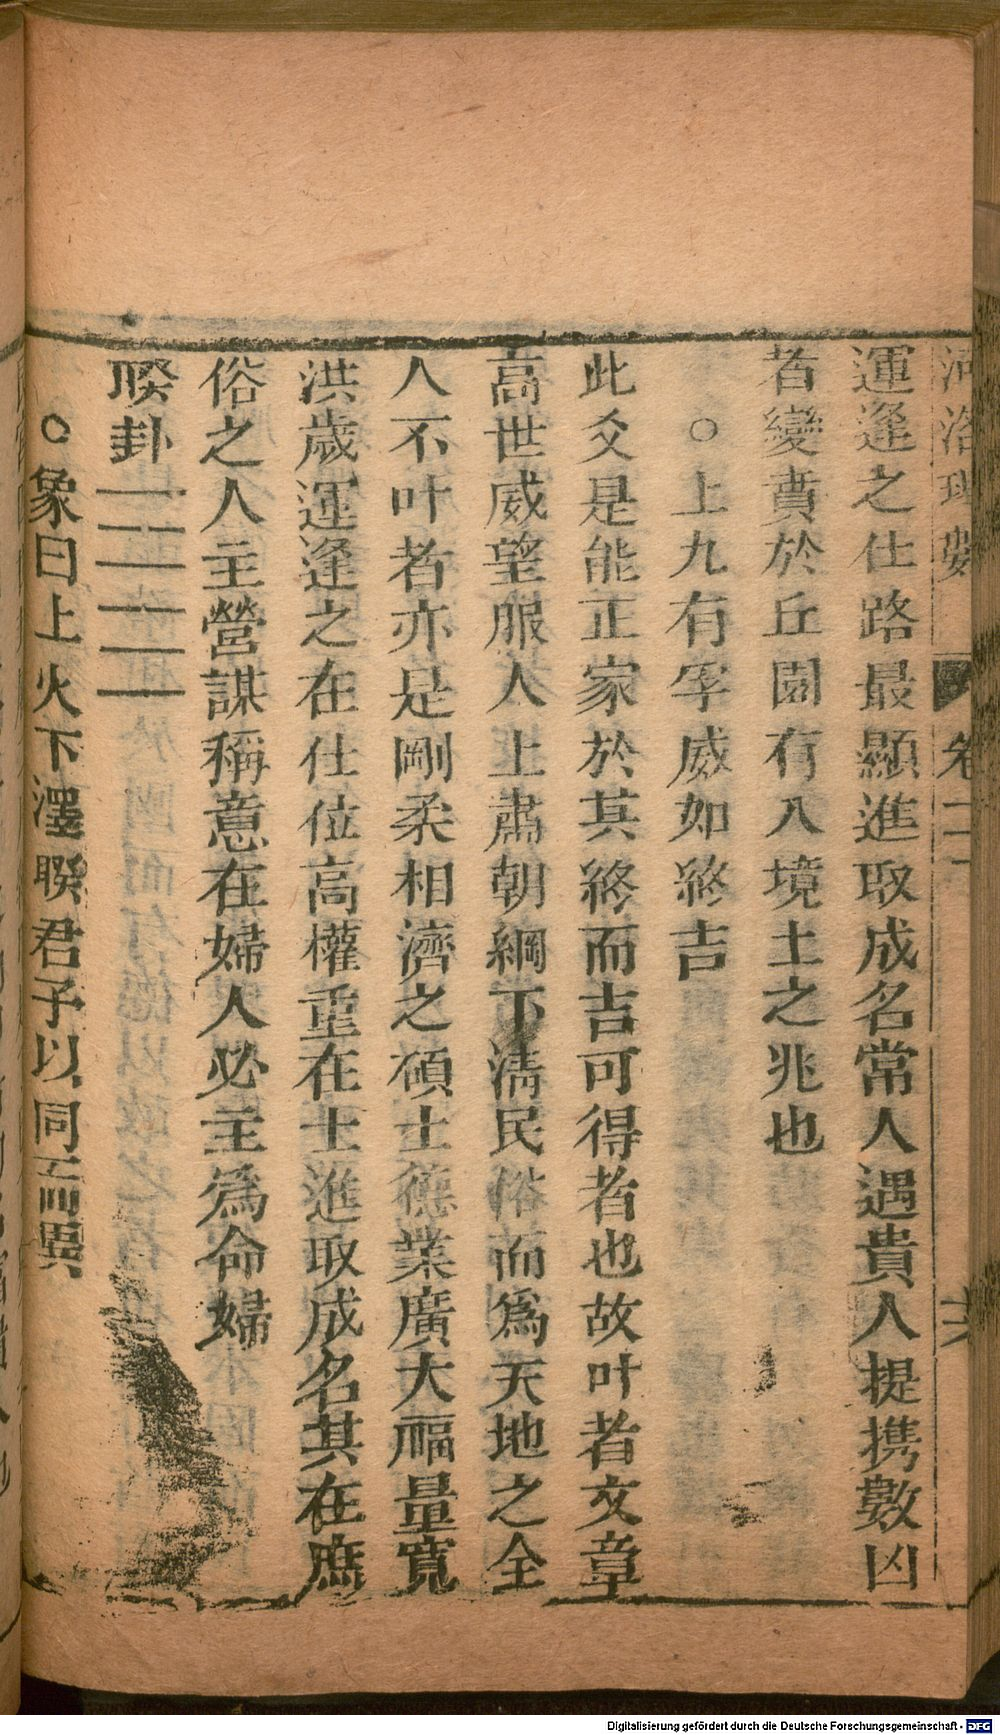 河洛理數 卷二 六
運逢之仕路最顯進取成名常人遇貴人提携數凶
者變賁於丘園有入境土之兆也
○上九有孚威如終吉
此爻是能正家於其終而吉可得者也故叶者文章
高世威望服人上肅朝綱下清民俗而為天地之全
人不叶者亦是剛柔相濟之碩士德業廣大福量寬
洪歲運逢之在仕位高權重在士進取成名其在庶
俗之人主營謀稱意在婦人必主為命婦
睽卦
○象曰上火下澤睽君子以同而異
Digitalisierung gefördert durch die Deutsche Forschungsgemeinschaft - DFG